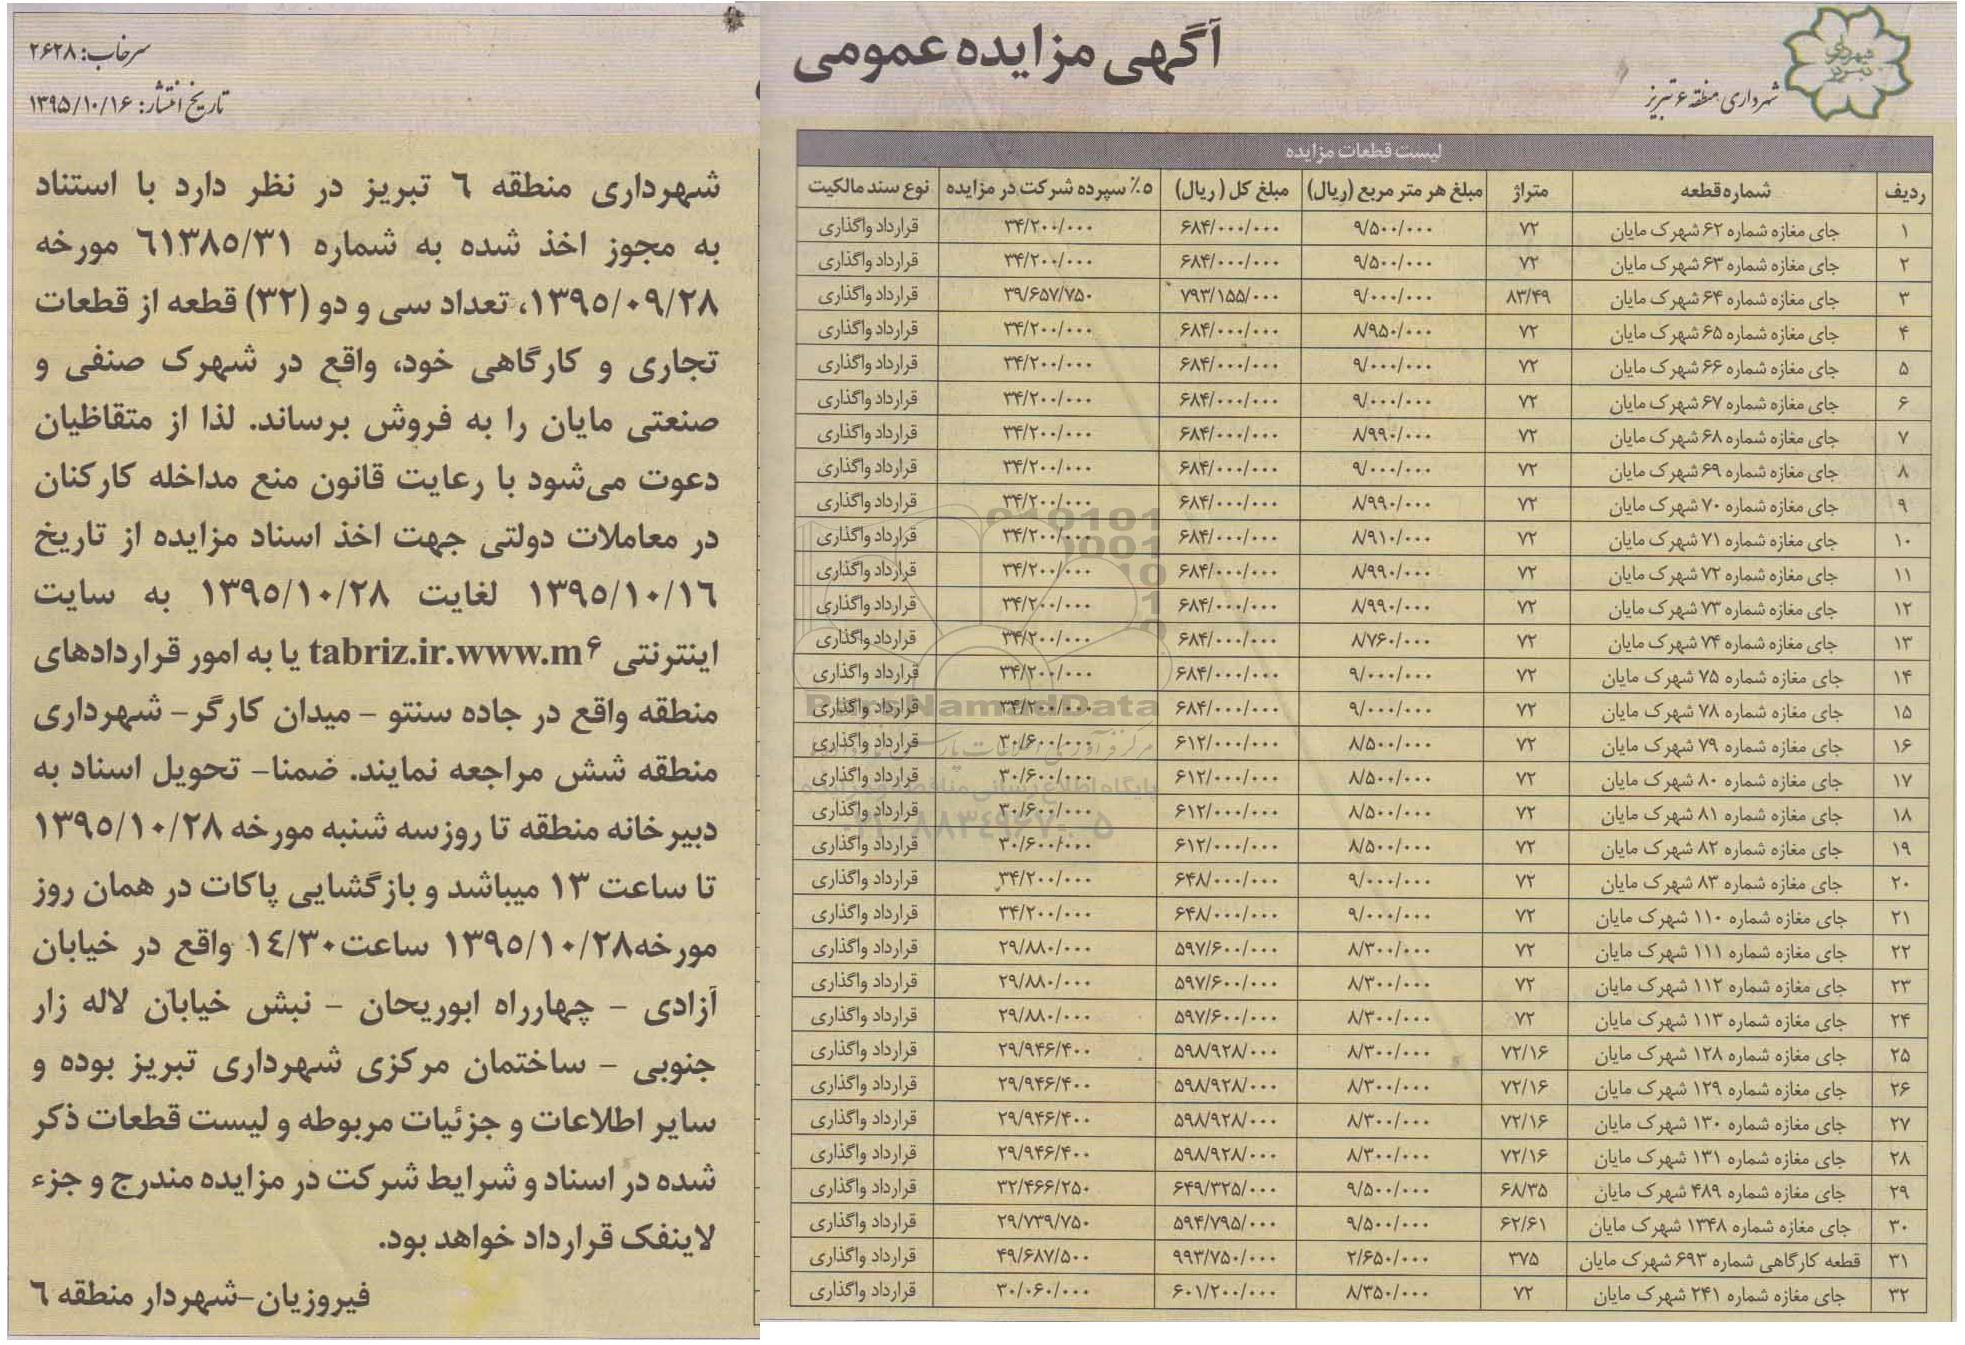 آگهی مزایده عمومی
شهرداری منطقه ۶ تبریز
سرخاب: ۲۶۲۸
تاریخ انتشار: ۱۳۹۵/۱۰/۱۶
شهرداری منطقه ٦ تبریز در نظر دارد با استناد
به مجوز اخذ شده به شماره ٦۱۳۸۵/۳۱ مورخه
۱۳۹۵/۰۹/۲۸، تعداد سی و دو (۳۲) قطعه از قطعات
تجاری و کارگاهی خود، واقع در شهرک صنفی و
صنعتی مایان را به فروش برساند. لذا از متقاظیان
دعوت می‌شود با رعایت قانون منع مداخله کارکنان
در معاملات دولتی جهت اخذ اسناد مزایده از تاریخ
۱۳۹۵/۱۰/۱٦ لغایت ۱۳۹۵/۱۰/۲۸ به سایت
اینترنتی tabriz.ir.www.m۶ یا به امور قراردادهای
منطقه واقع در جاده سنتو - میدان کارگر- شهرداری
منطقه شش مراجعه نمایند. ضمنا- تحویل اسناد به
دبیرخانه منطقه تا روزسه شنبه مورخه ۱۳۹۵/۱۰/۲۸
تا ساعت ۱۳ میباشد و بازگشایی پاکات در همان روز
مورخه۱۳۹۵/۱۰/۲۸ ساعت۱٤/۳۰ واقع در خیابان
آزادی - چهارراه ابوریحان - نبش خیابان لاله زار
جنوبی - ساختمان مرکزی شهرداری تبریز بوده و
سایر اطلاعات و جزئیات مربوطه و لیست قطعات ذکر
شده در اسناد و شرایط شرکت در مزایده مندرج و جزء
لاینفک قرارداد خواهد بود.
فیروزیان-شهردار منطقه ٦
لیست قطعات مزایده
ردیف شماره قطعه متراژ مبلغ هر متر مربع (ریال) مبلغ کل (ریال) ۵٪ سپرده شرکت در مزایده نوع سند مالکیت
۱ جای مغازه شماره ۶۲ شهرک مایان ۷۲ ۹/۵۰۰/۰۰۰ ۶۸۴/۰۰۰/۰۰۰ ۳۴/۲۰۰/۰۰۰ قرارداد واگذاری
۲ جای مغازه شماره ۶۳ شهرک مایان ۷۲ ۹/۵۰۰/۰۰۰ ۶۸۴/۰۰۰/۰۰۰ ۳۴/۲۰۰/۰۰۰ قرارداد واگذاری
۳ جای مغازه شماره ۶۴ شهرک مایان ۸۳/۴۹ ۹/۰۰۰/۰۰۰ ۷۹۳/۱۵۵/۰۰۰ ۳۹/۶۵۷/۷۵۰ قرارداد واگذاری
۴ جای مغازه شماره ۶۵ شهرک مایان ۷۲ ۸/۹۵۰/۰۰۰ ۶۸۴/۰۰۰/۰۰۰ ۳۴/۲۰۰/۰۰۰ قرارداد واگذاری
۵ جای مغازه شماره ۶۶ شهرک مایان ۷۲ ۹/۰۰۰/۰۰۰ ۶۸۴/۰۰۰/۰۰۰ ۳۴/۲۰۰/۰۰۰ قرارداد واگذاری
۶ جای مغازه شماره ۶۷ شهرک مایان ۷۲ ۹/۰۰۰/۰۰۰ ۶۸۴/۰۰۰/۰۰۰ ۳۴/۲۰۰/۰۰۰ قرارداد واگذاری
۷ جای مغازه شماره ۶۸ شهرک مایان ۷۲ ۸/۹۹۰/۰۰۰ ۶۸۴/۰۰۰/۰۰۰ ۳۴/۲۰۰/۰۰۰ قرارداد واگذاری
۸ جای مغازه شماره ۶۹ شهرک مایان ۷۲ ۹/۰۰۰/۰۰۰ ۶۸۴/۰۰۰/۰۰۰ ۳۴/۲۰۰/۰۰۰ قرارداد واگذاری
۹ جای مغازه شماره ۷۰ شهرک مایان ۷۲ ۸/۹۹۰/۰۰۰ ۶۸۴/۰۰۰/۰۰۰ ۳۴/۲۰۰/۰۰۰ قرارداد واگذاری
۱۰ جای مغازه شماره ۷۱ شهرک مایان ۷۲ ۸/۹۱۰/۰۰۰ ۶۸۴/۰۰۰/۰۰۰ ۳۴/۲۰۰/۰۰۰ قرارداد واگذاری
۱۱ جای مغازه شماره ۷۲ شهرک مایان ۷۲ ۸/۹۹۰/۰۰۰ ۶۸۴/۰۰۰/۰۰۰ ۳۴/۲۰۰/۰۰۰ قرارداد واگذاری
۱۲ جای مغازه شماره ۷۳ شهرک مایان ۷۲ ۸/۹۹۰/۰۰۰ ۶۸۴/۰۰۰/۰۰۰ ۳۴/۲۰۰/۰۰۰ قرارداد واگذاری
۱۳ جای مغازه شماره ۷۴ شهرک مایان ۷۲ ۸/۷۶۰/۰۰۰ ۶۸۴/۰۰۰/۰۰۰ ۳۴/۲۰۰/۰۰۰ قرارداد واگذاری
۱۴ جای مغازه شماره ۷۵ شهرک مایان ۷۲ ۹/۰۰۰/۰۰۰ ۶۸۴/۰۰۰/۰۰۰ ۳۴/۲۰۰/۰۰۰ قرارداد واگذاری
۱۵ جای مغازه شماره ۷۸ شهرک مایان ۷۲ ۹/۰۰۰/۰۰۰ ۶۸۴/۰۰۰/۰۰۰ ۳۴/۲۰۰/۰۰۰ قرارداد واگذاری
۱۶ جای مغازه شماره ۷۹ شهرک مایان ۷۲ ۸/۵۰۰/۰۰۰ ۶۱۲/۰۰۰/۰۰۰ ۳۰/۶۰۰/۰۰۰ قرارداد واگذاری
۱۷ جای مغازه شماره ۸۰ شهرک مایان ۷۲ ۸/۵۰۰/۰۰۰ ۶۱۲/۰۰۰/۰۰۰ ۳۰/۶۰۰/۰۰۰ قرارداد واگذاری
۱۸ جای مغازه شماره ۸۱ شهرک مایان ۷۲ ۸/۵۰۰/۰۰۰ ۶۱۲/۰۰۰/۰۰۰ ۳۰/۶۰۰/۰۰۰ قرارداد واگذاری
۱۹ جای مغازه شماره ۸۲ شهرک مایان ۷۲ ۸/۵۰۰/۰۰۰ ۶۱۲/۰۰۰/۰۰۰ ۳۰/۶۰۰/۰۰۰ قرارداد واگذاری
۲۰ جای مغازه شماره ۸۳ شهرک مایان ۷۲ ۹/۰۰۰/۰۰۰ ۶۴۸/۰۰۰/۰۰۰ ۳۴/۲۰۰/۰۰۰ قرارداد واگذاری
۲۱ جای مغازه شماره ۱۱۰ شهرک مایان ۷۲ ۹/۰۰۰/۰۰۰ ۶۴۸/۰۰۰/۰۰۰ ۳۴/۲۰۰/۰۰۰ قرارداد واگذاری
۲۲ جای مغازه شماره ۱۱۱ شهرک مایان ۷۲ ۸/۳۰۰/۰۰۰ ۵۹۷/۶۰۰/۰۰۰ ۲۹/۸۸۰/۰۰۰ قرارداد واگذاری
۲۳ جای مغازه شماره ۱۱۲ شهرک مایان ۷۲ ۸/۳۰۰/۰۰۰ ۵۹۷/۶۰۰/۰۰۰ ۲۹/۸۸۰/۰۰۰ قرارداد واگذاری
۲۴ جای مغازه شماره ۱۱۳ شهرک مایان ۷۲ ۸/۳۰۰/۰۰۰ ۵۹۷/۶۰۰/۰۰۰ ۲۹/۸۸۰/۰۰۰ قرارداد واگذاری
۲۵ جای مغازه شماره ۱۲۸ شهرک مایان ۷۲/۱۶ ۸/۳۰۰/۰۰۰ ۵۹۸/۹۲۸/۰۰۰ ۲۹/۹۴۶/۴۰۰ قرارداد واگذاری
۲۶ جای مغازه شماره ۱۲۹ شهرک مایان ۷۲/۱۶ ۸/۳۰۰/۰۰۰ ۵۹۸/۹۲۸/۰۰۰ ۲۹/۹۴۶/۴۰۰ قرارداد واگذاری
۲۷ جای مغازه شماره ۱۳۰ شهرک مایان ۷۲/۱۶ ۸/۳۰۰/۰۰۰ ۵۹۸/۹۲۸/۰۰۰ ۲۹/۹۴۶/۴۰۰ قرارداد واگذاری
۲۸ جای مغازه شماره ۱۳۱ شهرک مایان ۷۲/۱۶ ۸/۳۰۰/۰۰۰ ۵۹۸/۹۲۸/۰۰۰ ۲۹/۹۴۶/۴۰۰ قرارداد واگذاری
۲۹ جای مغازه شماره ۴۸۹ شهرک مایان ۶۸/۳۵ ۹/۵۰۰/۰۰۰ ۶۴۹/۳۲۵/۰۰۰ ۳۲/۴۶۶/۲۵۰ قرارداد واگذاری
۳۰ جای مغازه شماره ۱۳۴۸ شهرک مایان ۶۲/۶۱ ۹/۵۰۰/۰۰۰ ۵۹۴/۷۹۵/۰۰۰ ۲۹/۷۳۹/۷۵۰ قرارداد واگذاری
۳۱ قطعه کارگاهی شماره ۶۹۳ شهرک مایان ۳۷۵ ۲/۶۵۰/۰۰۰ ۹۹۳/۷۵۰/۰۰۰ ۴۹/۶۸۷/۵۰۰ قرارداد واگذاری
۳۲ جای مغازه شماره ۲۴۱ شهرک مایان ۷۲ ۸/۳۵۰/۰۰۰ ۶۰۱/۲۰۰/۰۰۰ ۳۰/۰۶۰/۰۰۰ قرارداد واگذاری